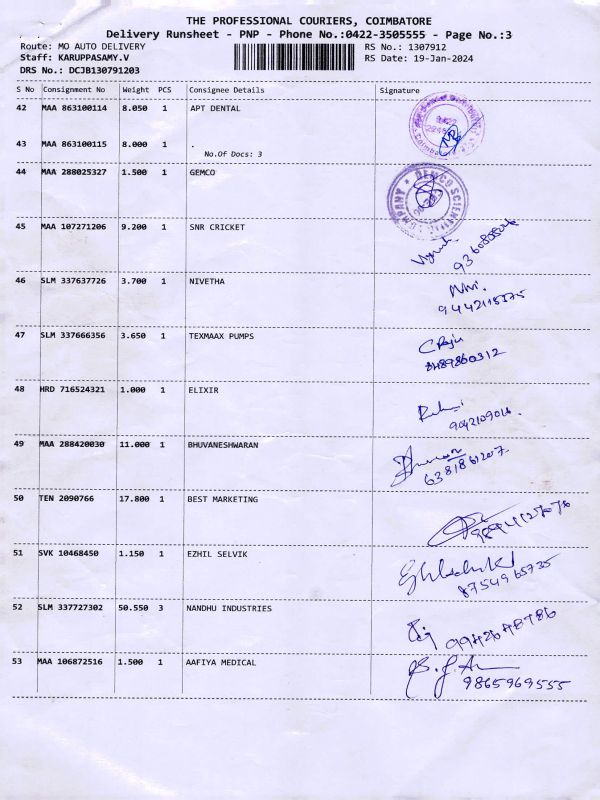 THE PROFESSIONAL COURIERS, COIMBATORE
Delivery Runsheet - PNP - Phone No.:0422-3505555 - Page No.:3
Route: MO AUTO DELIVERY RS No.: 1307912
Staff: KARUPPASAMY.V RS Date: 19-Jan-2024
DRS No.: DCJB130791203
S No Consignment No Weight PCS Consignee Details Signature
42 MAA 863100114 8.050 1 APT DENTAL
43 MAA 863100115 8.000 1 .
No.Of Docs: 3
44 MAA 288025327 1.500 1 GEMCO
DEMCO SCIENTIFIC COMPANY
45 MAA 107271206 9.200 1 SNR CRICKET
46 SLM 337637726 3.700 1 NIVETHA
Nivi.
9442115375
47 SLM 337666356 3.650 1 TEXMAAX PUMPS
C Raju
8489860312
48 HRD 716524321 1.000 1 ELIXIR
9042109016.
49 MAA 288420030 11.000 1 BHUVANESHWARAN
6381861207
50 TEN 2090766 17.800 1 BEST MARKETING
51 SVK 10468450 1.150 1 EZHIL SELVIK
8754965735
52 SLM 337727302 50.550 3 NANDHU INDUSTRIES
9942648786
53 MAA 106872516 1.500 1 AAFIYA MEDICAL
9865969555